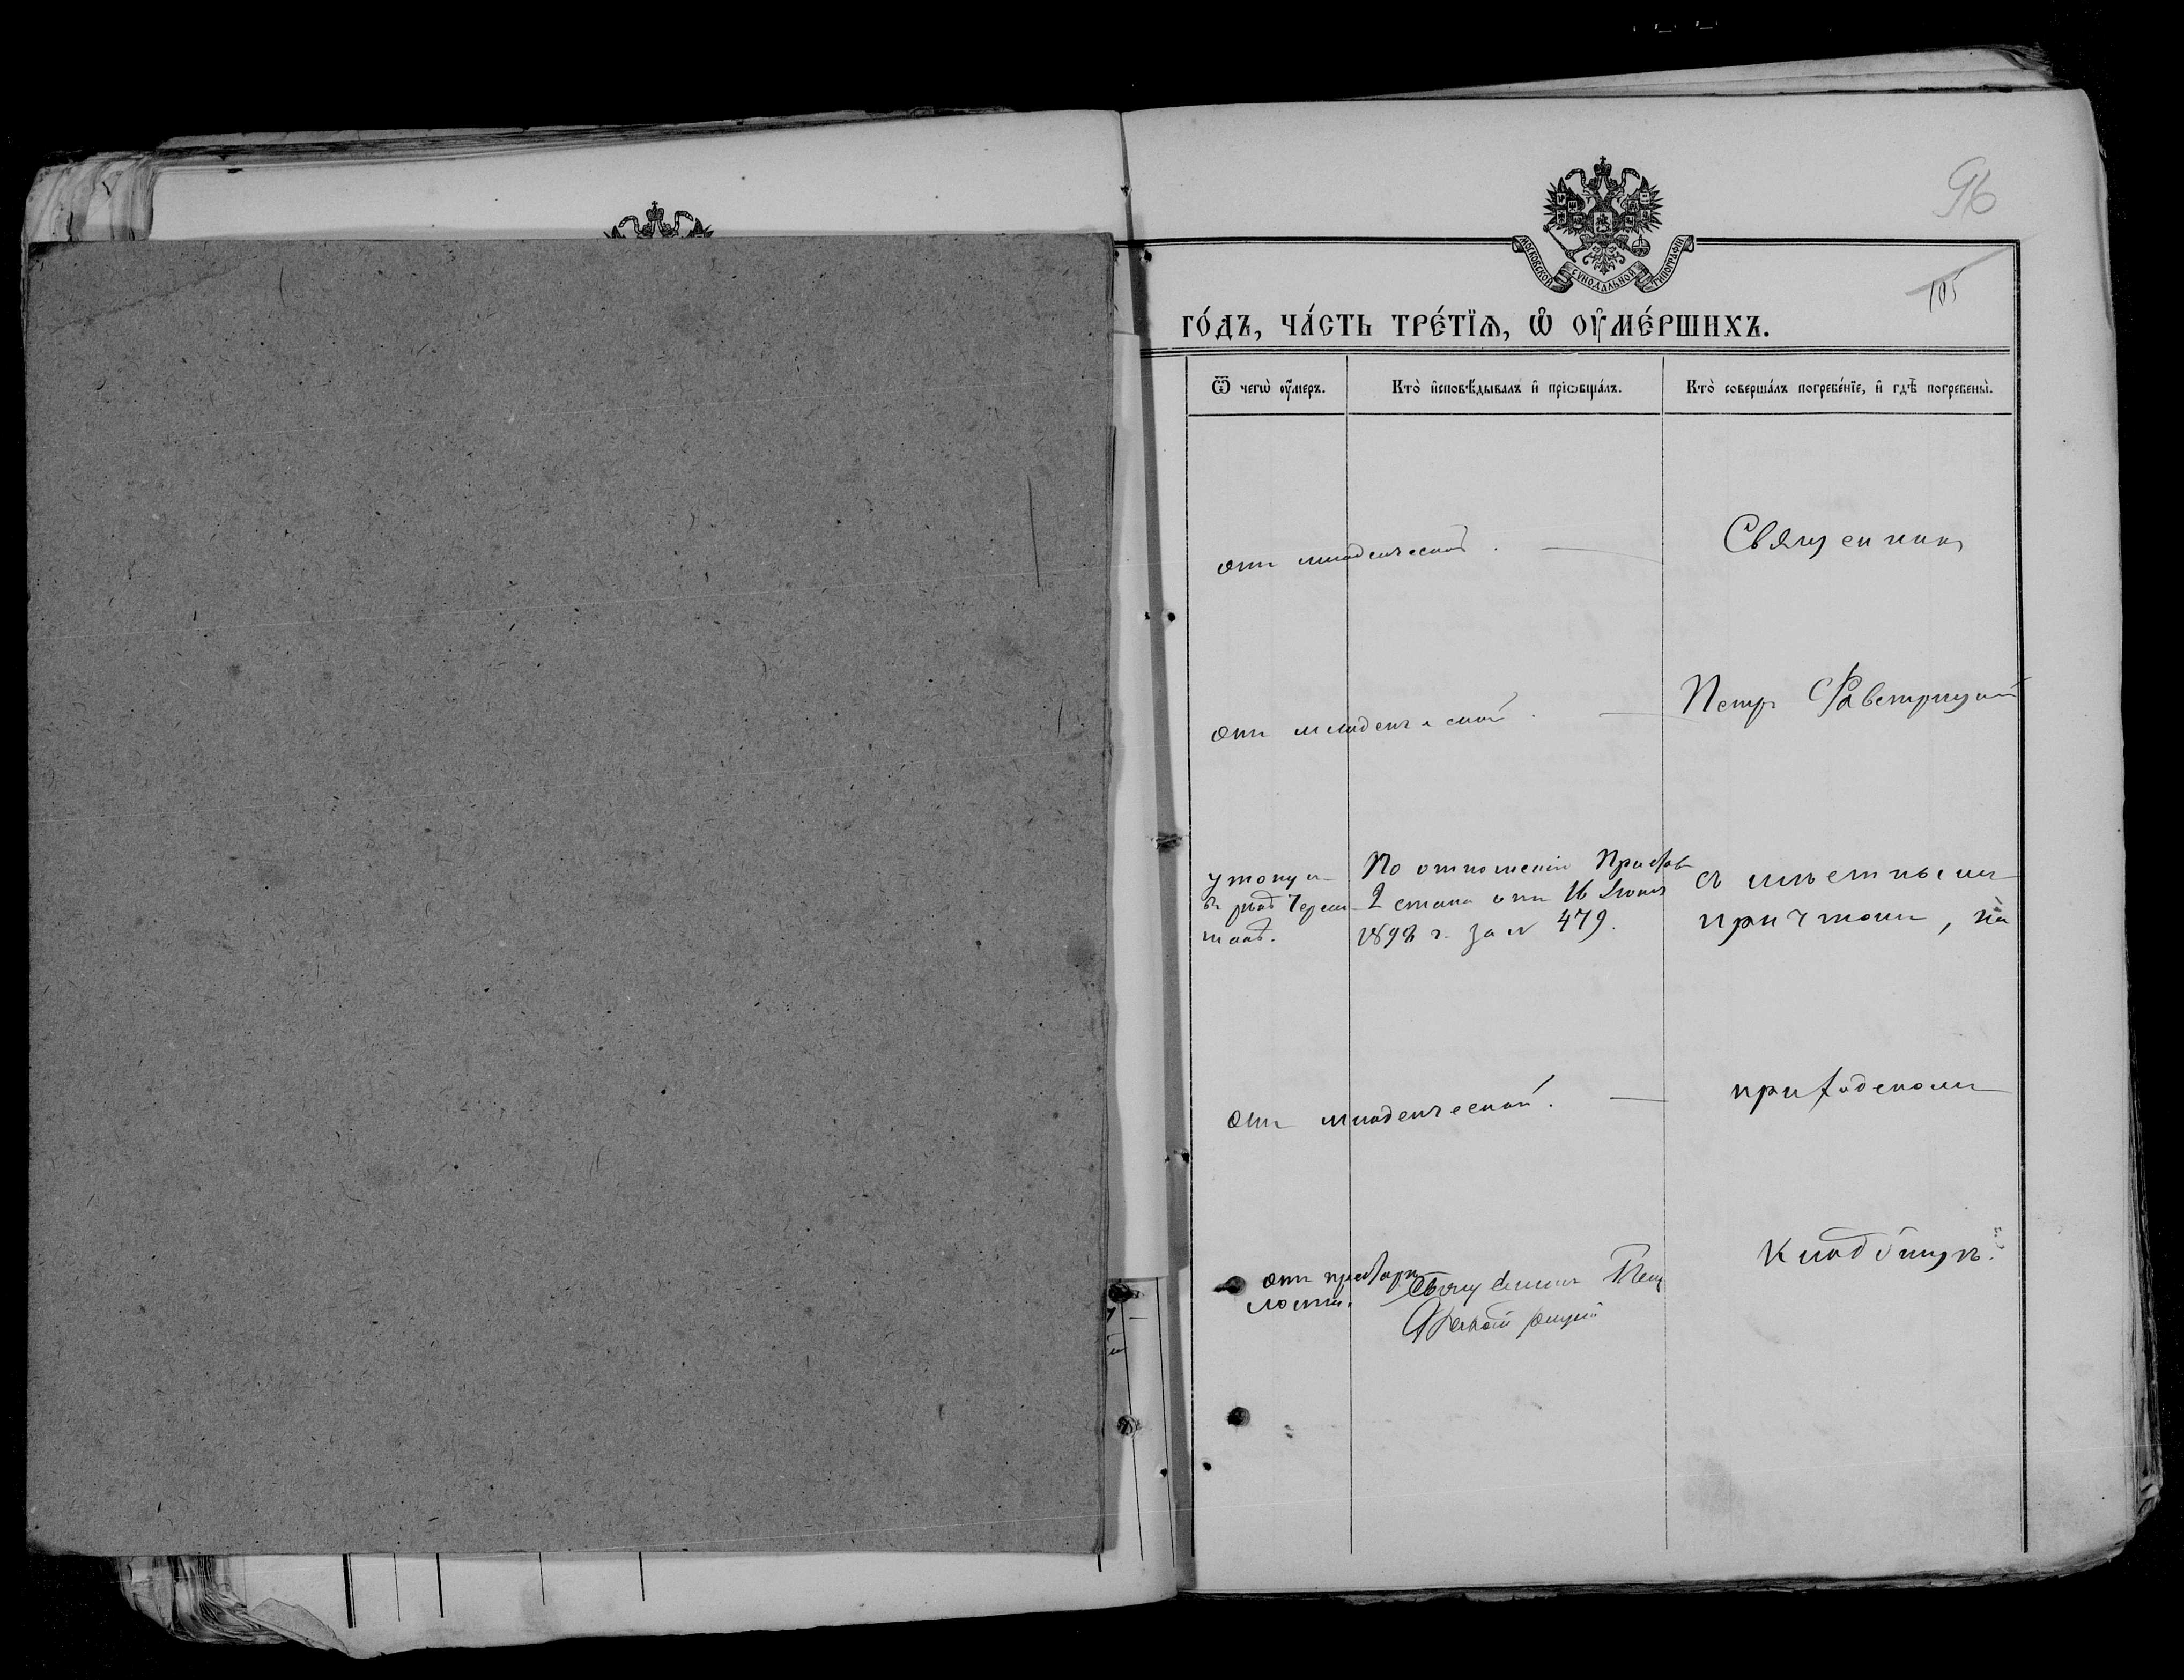 96
105
МОСКОВСКОЙ СѴНОДАЛЬНОЙ ТИПОГРАФІИ
го́дъ, ча́сть тре́тїѧ, ѡ҆ ᲂу҆ме́ршихъ.
Ѿ чегѡ̀ ᲂу҆́меръ.
Кто̀ и҆сповѣ́дывалъ и҆ прїѡбща́лъ.
Кто̀ соверша́лъ погребе́нїе, и҆ гдѣ̀ погребены̀.
отъ младенческой.
Священникъ
отъ младенческой.
Петръ
утону
въ
По отношенію Пристава
2 стана отъ 16 Іюня
1898 г. за № 479.
съ мѣстнымъ
причтомъ, на
отъ младенческой.
приходскомъ
отъ престарѣ
лости.
Священникъ Петръ
кладбищѣ.